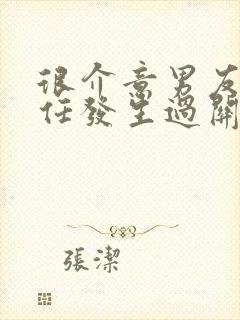 很介意男友
任發生過關
張潔